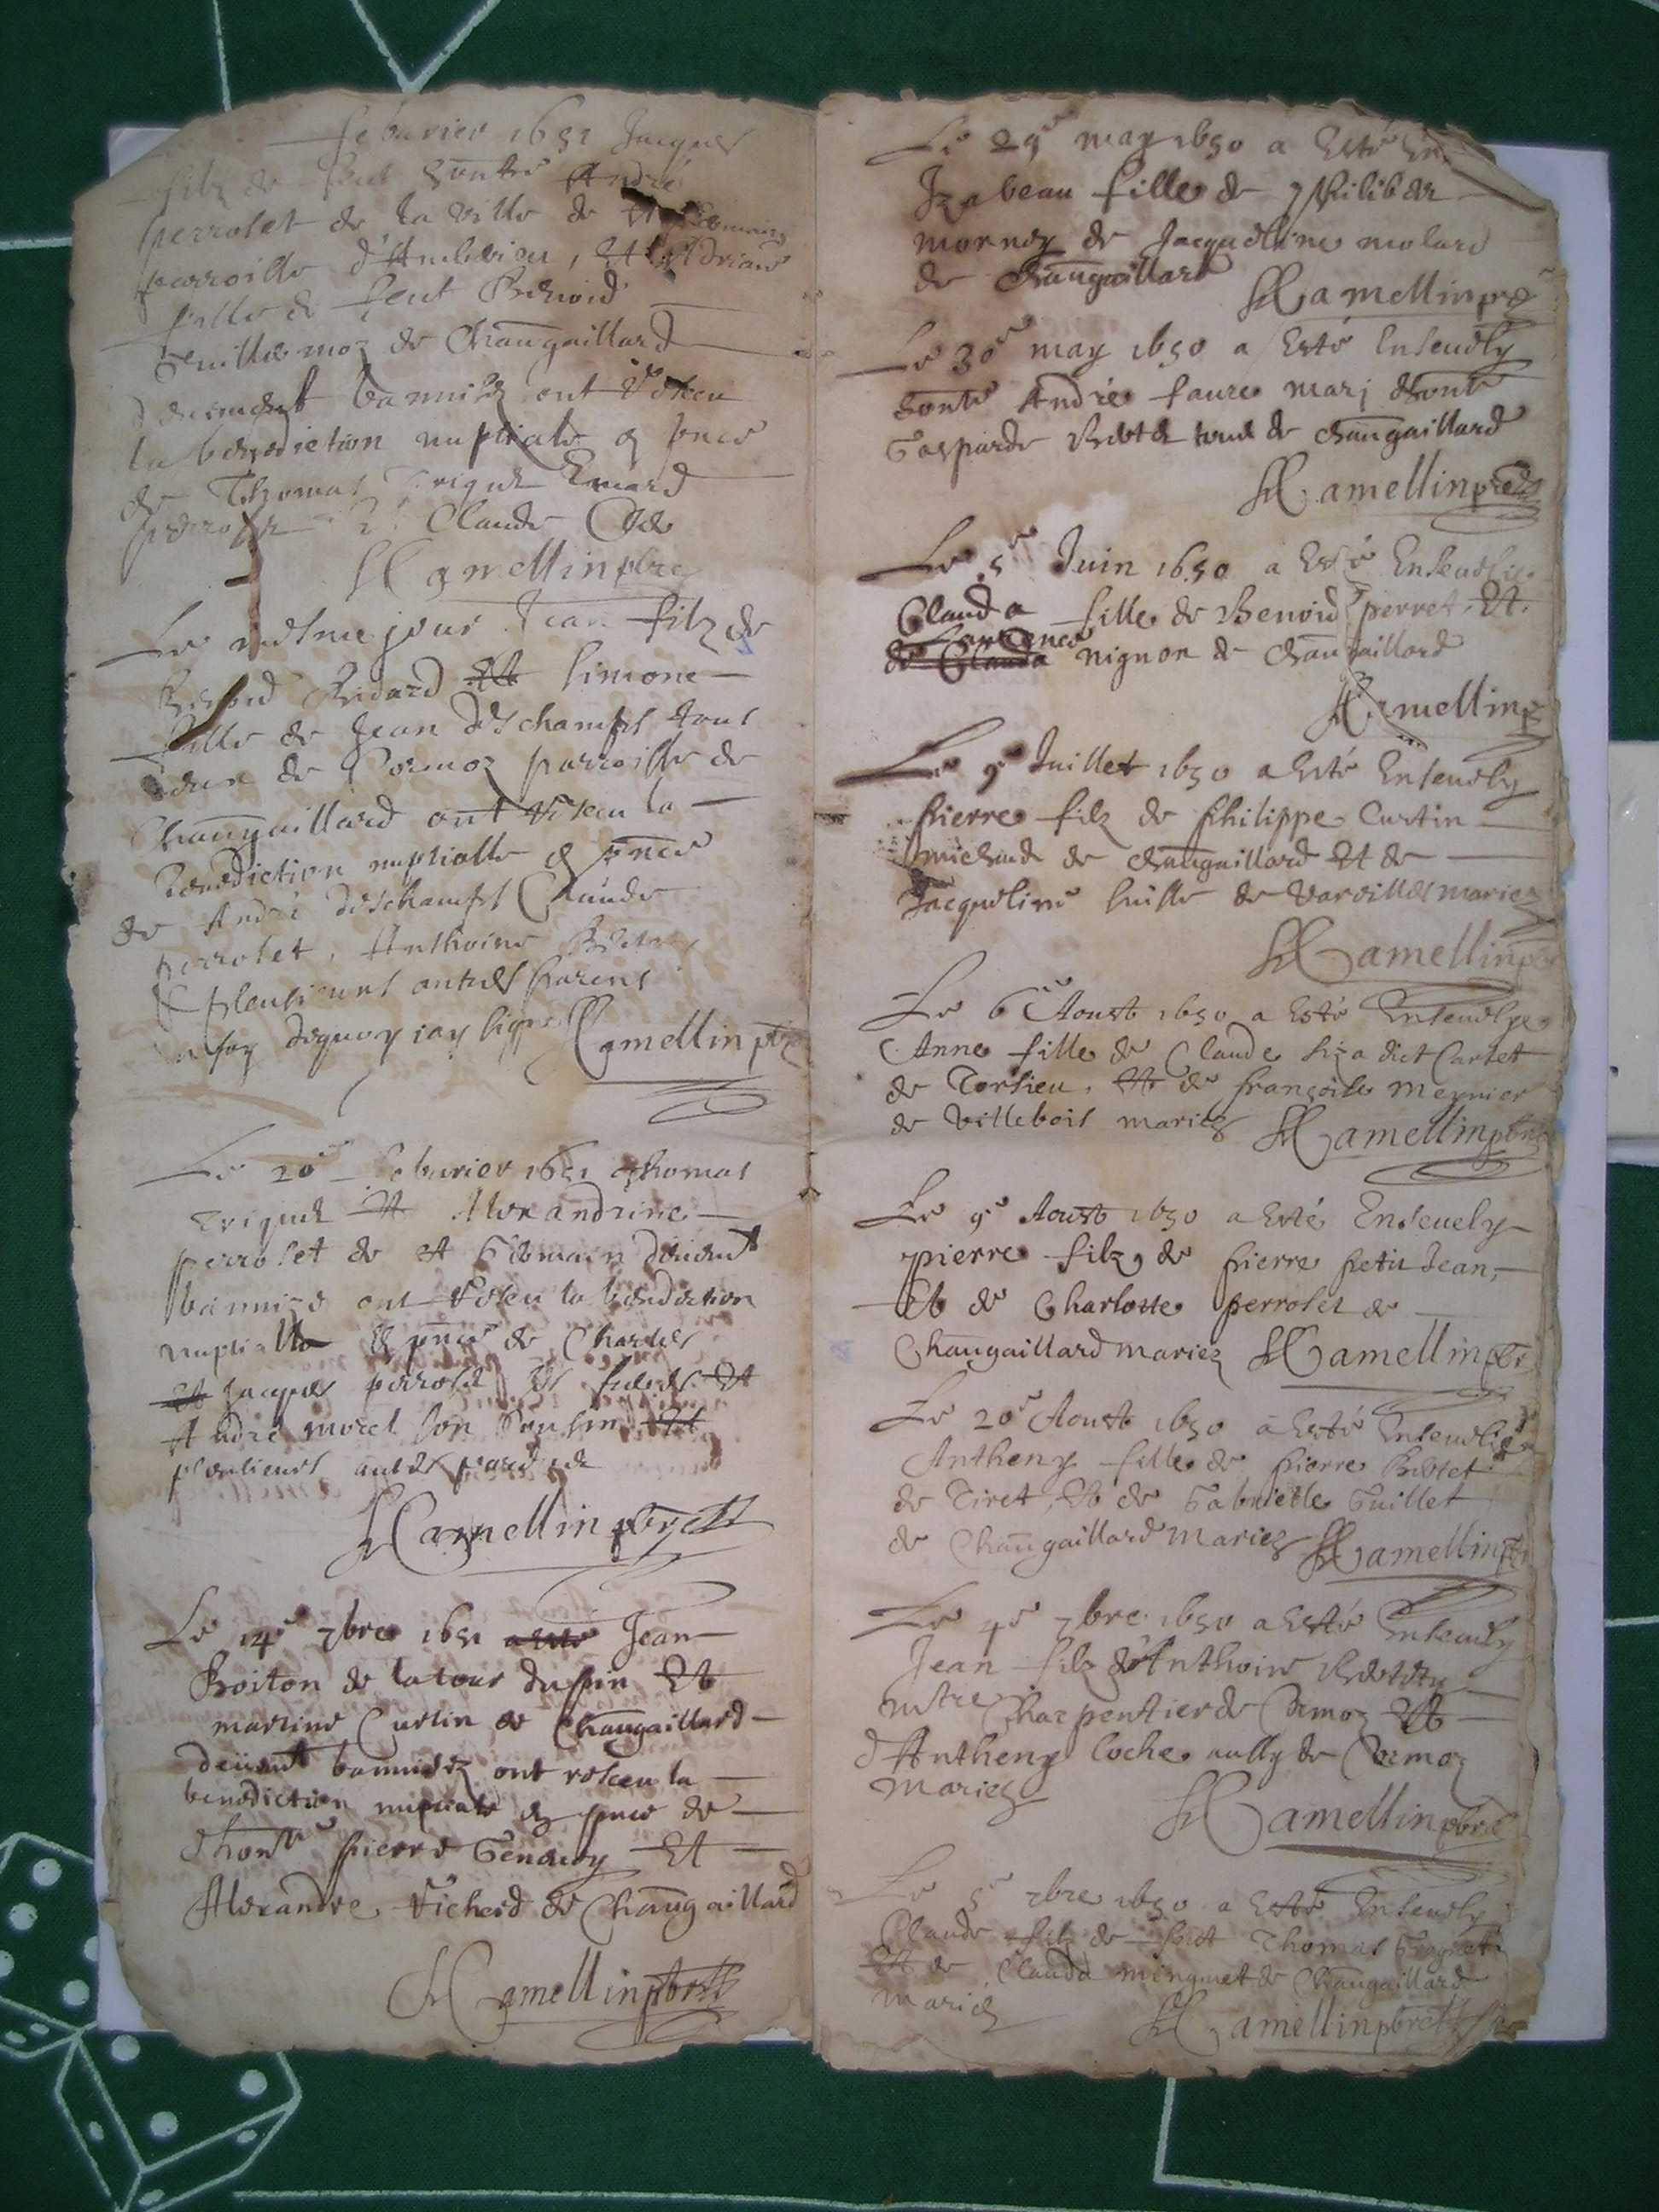 febvrier 1651 Jacques
filz de feut honeste André
perroset de la ville de St Germain
parroisse d'Ambérieu, Et
fille de feut Benoid
Guillemoz de Chaugaillard
deument bannisez ont Reseu
la benediction nuptiale et pnce
de Thomas Trigut Emard
perroset Claude
HCamellin pbre
Le mesme jour Jean filz de
Benoid Bidard Et Simone
fille de Jean deschamps tous
deux de Cormoz parroisse de
Chaugaillard ont Reseu la
benediction nuptialle et pnce
de André deschamps Claude
perroset, Anthoine
Et plusieurs autres parens
en foy dequoy jay signé HCamellin pbre
Le 20e febvrier 1651 Thomas
Trigut Et Alexandrine
perroset de St Germain deument
bannize ont Reseu la benediction
nuptialle et pnce de Charles
Et Jacques perroset ses freres Et
André morel son Cousin Et
plusieurs autres parens
HCamellin pbre
Le 14e 7bre 1651 a esté Jean
Boiton de latour dupin Et
martine Curtin de Chaugaillard
deüemt bannisez ont reseu la
benediction nuptiale et pnce de
dhonte pierre Genevoy Et
Alexandre Richerd de Chaugaillard
HCamellin pbre
Le 29e may 1650 a Esté
Izabeau fille de philibert
mornex de Jacqueline molard
de Chaugaillard HCamellin pbre
Le 30e may 1650 a Esté Ensevely
honte André faure mari dhonte
Gasparde tous de Chaugaillard
HCamellin pbre
Le 5e Juin 1650 a Esté Ensevelie
Clauda fille de Benoid perret Et
de Clauda Laurence nignon de Chaugaillard
HCamellin p
Le 9e Juillet 1650 a Esté Ensevely
pierre filz de philippe Curtin
michaud de Chaugaillard Et de
Jacqueline de Vareilles mariez
HCamellin p
Le 6e Aoust 1650 a Esté Ensevelye
Anne fille de Claude dict Cartet
de Torsieu, Et de françoise meynier
de Villebois mariez HCamellin pbre
Le 9e Aoust 1650 a Esté Ensevely
pierre filz de pierre petit Jean,
Et de Charlotte perroset de
Chaugaillard mariez HCamellin pbre
Le 20e Aoust 1650 a Esté Ensevelie
Antheny fille de pierre
de Tiret, Et de Gabrielle Guillet
de Chaugaillard mariez HCamellin p
Le 4e 7bre 1650 a Esté Ensevely
Jean filz d'Anthoine
mtre Charpentier de Cormoz Et
d'Antheny Coche aussy de Cormoz
mariez
HCamellin pbre
Le 5e 7bre 1650 a Esté Ensevely
Claude filz de feut Thomas
Et de Clauda de Chaugaillard
mariez
HCamellin pbre